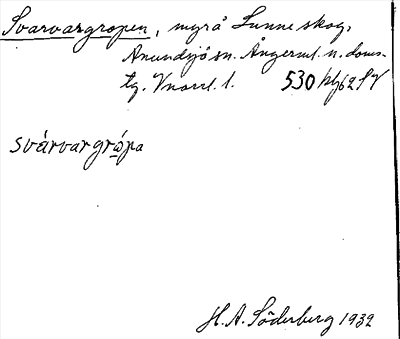 Svarvargropen, myrå Sunneskog,
Anundsjö sn. Ångerml. n. doms.
tg. Vnorrl. l. 530 62 SV
svárvargrópa
H. A. Söderberg 1932